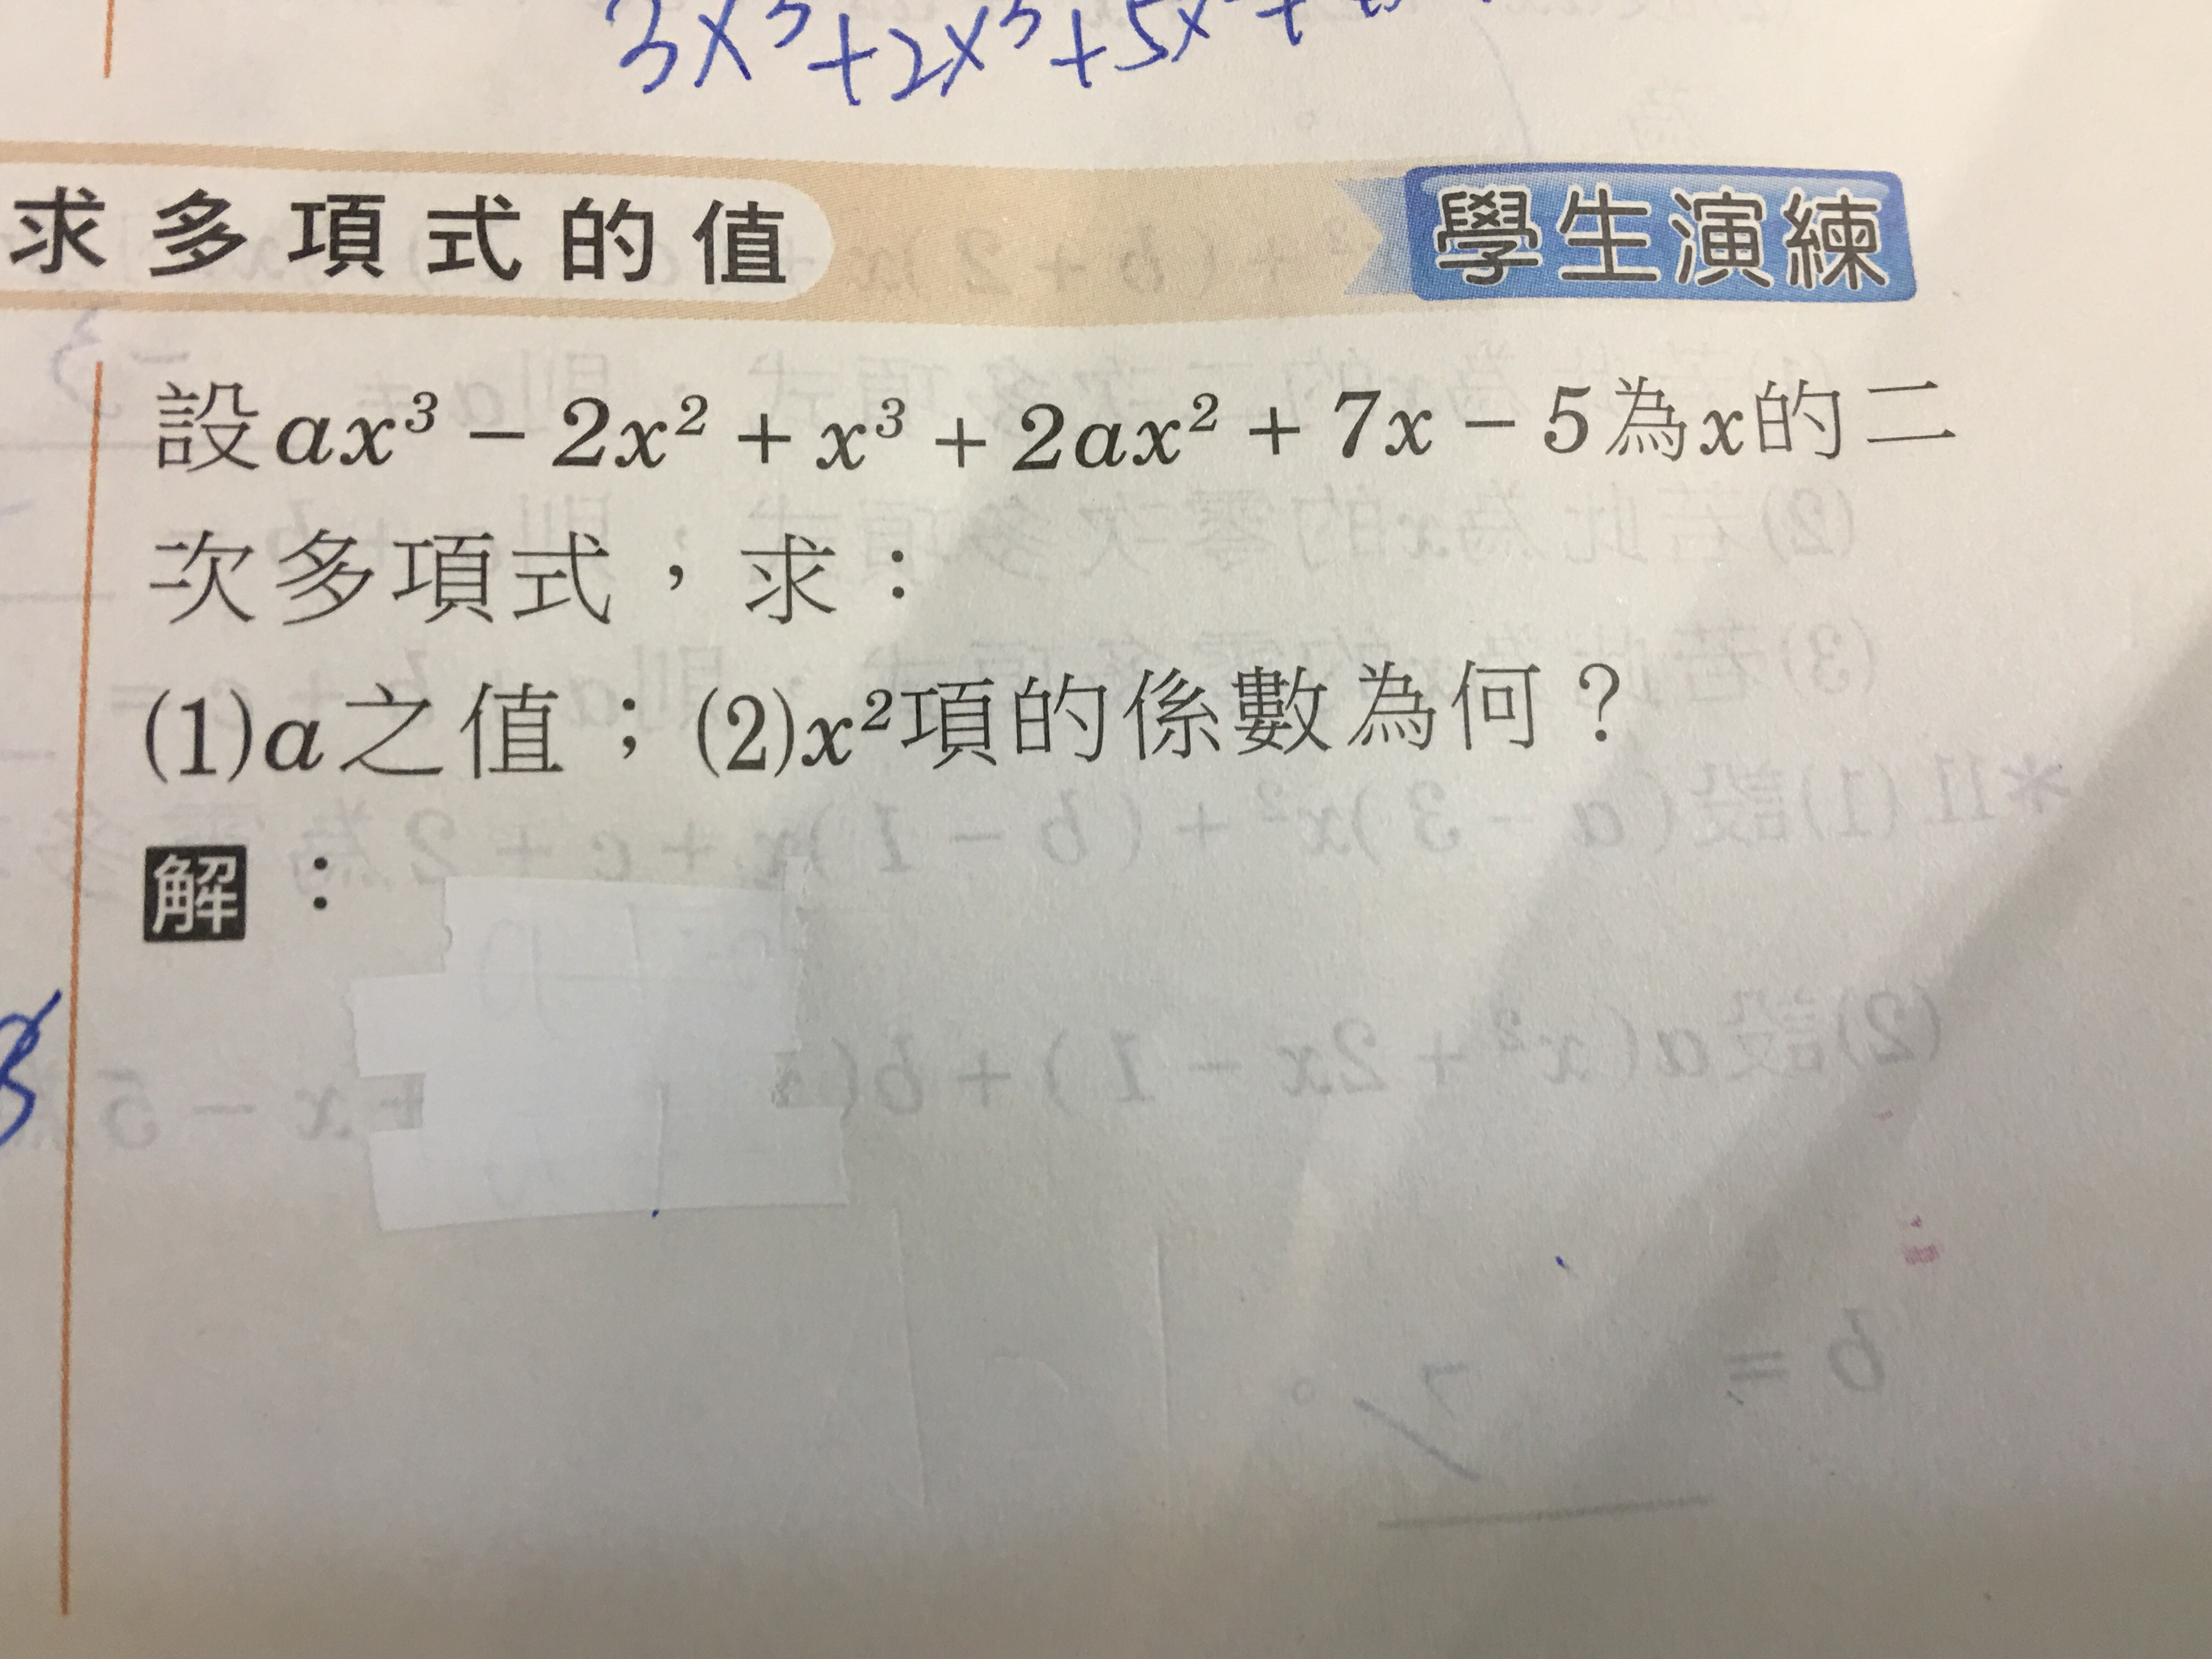 3x³+2x³+5x
求多項式的值
學生演練
設ax³ − 2x² + x³ + 2ax² + 7x − 5為x的二
次多項式，求：
(1)a之值；(2)x²項的係數為何？
解：